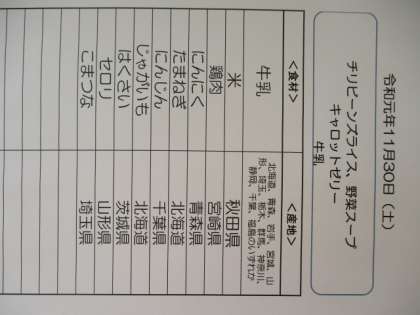 令和元年11月30日（土）
チリビーンズライス、野菜スープ
キャロットゼリー
牛乳
＜食材＞ ＜産地＞
牛乳 北海道、青森、岩手、宮城、山
形、埼玉、栃木、群馬、神奈川、
静岡、千葉、福島のいずれか
米 秋田県
鶏肉 宮崎県
にんにく 青森県
たまねぎ 北海道
にんじん 千葉県
じゃがいも 北海道
はくさい 茨城県
セロリ 山形県
こまつな 埼玉県